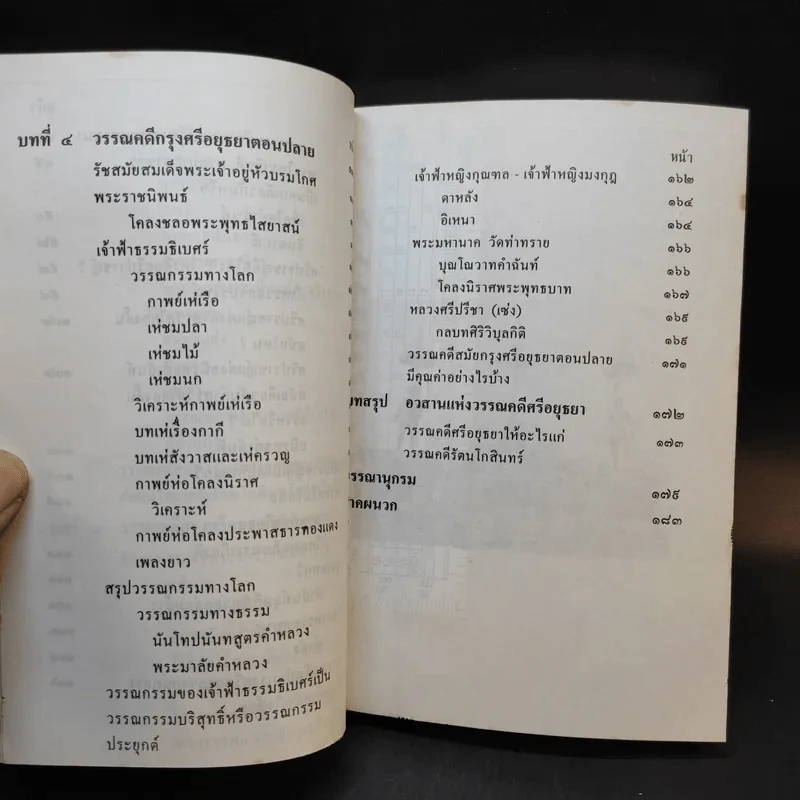 บทที่ ๔ วรรณคดีกรุงศรีอยุธยาตอนปลาย
รัชสมัยสมเด็จพระเจ้าอยู่หัวบรมโกศ
พระราชนิพนธ์
โคลงชลอพระพุทธไสยาสน์
เจ้าฟ้าธรรมธิเบศร์
วรรณกรรมทางโลก
กาพย์เห่เรือ
เห่ชมปลา
เห่ชมไม้
เห่ชมนก
วิเคราะห์กาพย์เห่เรือ
บทเห่เรื่องกากี
บทเห่สังวาสและเห่ครวญ
กาพย์ห่อโคลงนิราศ
วิเคราะห์
กาพย์ห่อโคลงประพาสธารทองแดง
เพลงยาว
สรุปวรรณกรรมทางโลก
วรรณกรรมทางธรรม
นันโทปนันทสูตรคำหลวง
พระมาลัยคำหลวง
วรรณกรรมของเจ้าฟ้าธรรมธิเบศร์เป็น
วรรณกรรมบริสุทธิ์หรือวรรณกรรม
ประยุกต์
หน้า
เจ้าฟ้าหญิงกุณฑล - เจ้าฟ้าหญิงมงกุฎ ๑๖๒
ดาหลัง ๑๖๔
อิเหนา ๑๖๔
พระมหานาค วัดท่าทราย ๑๖๖
บุณโณวาทคำฉันท์ ๑๖๖
โคลงนิราศพระพุทธบาท ๑๖๗
หลวงศรีปรีชา (เซ่ง) ๑๖๙
กลบทศิริวิบุลกิติ ๑๖๙
วรรณคดีสมัยกรุงศรีอยุธยาตอนปลาย ๑๗๑
มีคุณค่าอย่างไรบ้าง
บทสรุป อวสานแห่งวรรณคดีศรีอยุธยา ๑๗๒
วรรณคดีศรีอยุธยาให้อะไรแก่ ๑๗๓
วรรณคดีรัตนโกสินทร์
รรณานุกรม ๑๗๙
าคผนวก ๑๘๓